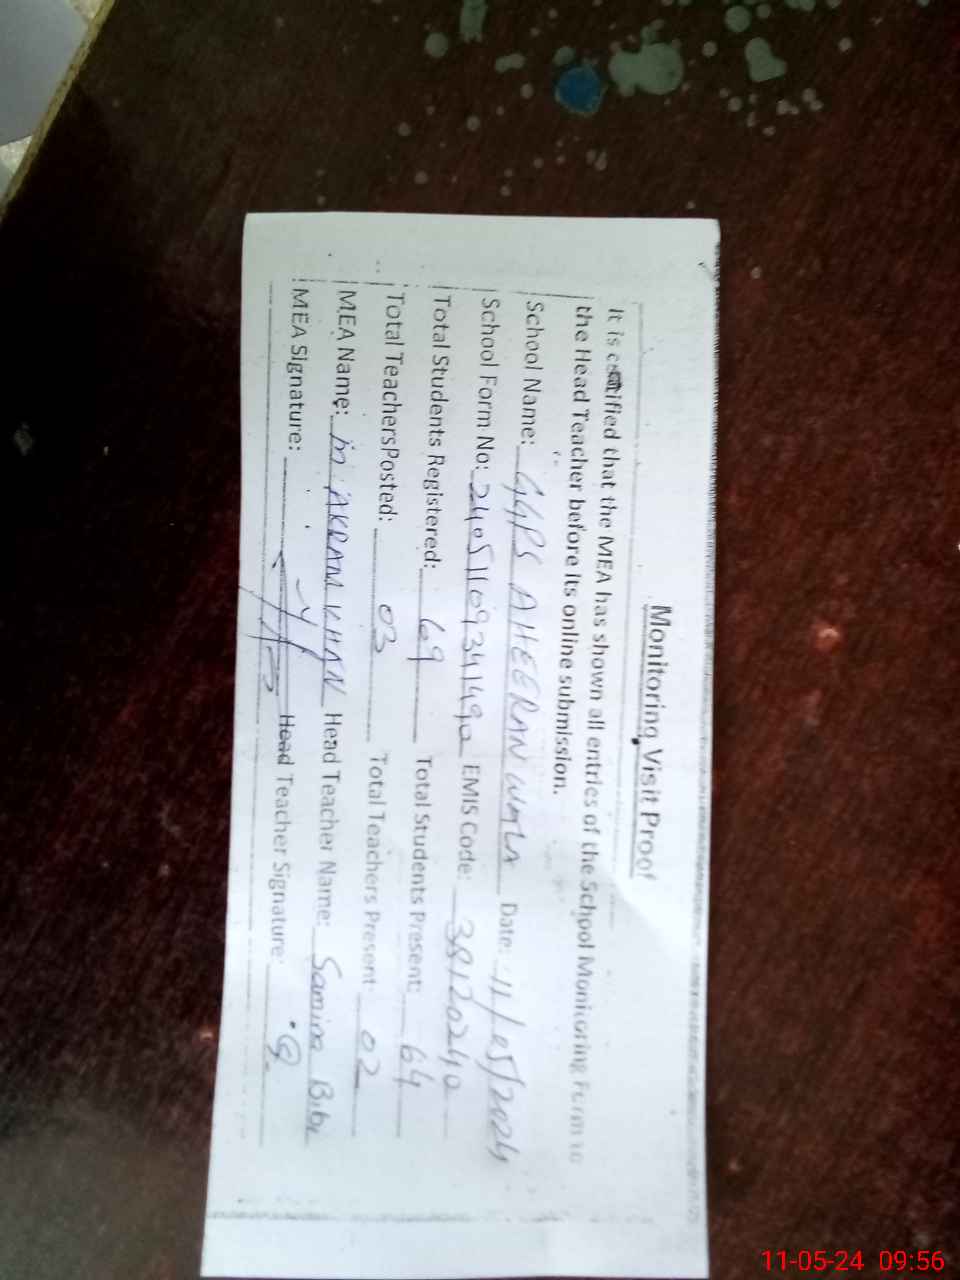 Monitoring Visit Proof
It is certified that the MEA has shown all entries of the School Monitoring Form to
the Head Teacher before its online submission.
School Name: GGPS AHEERANWALA Date: 11/05/2024
School Form No: 24051109341490 EMIS Code: 38120240
Total Students Registered: 69 Total Students Present: 64
Total TeachersPosted: 03 Total Teachers Present: 02
MEA Name: M AKRAM KHAN Head Teacher Name: Samina Bibi
MEA Signature: Head Teacher Signature:
11-05-24 09:56